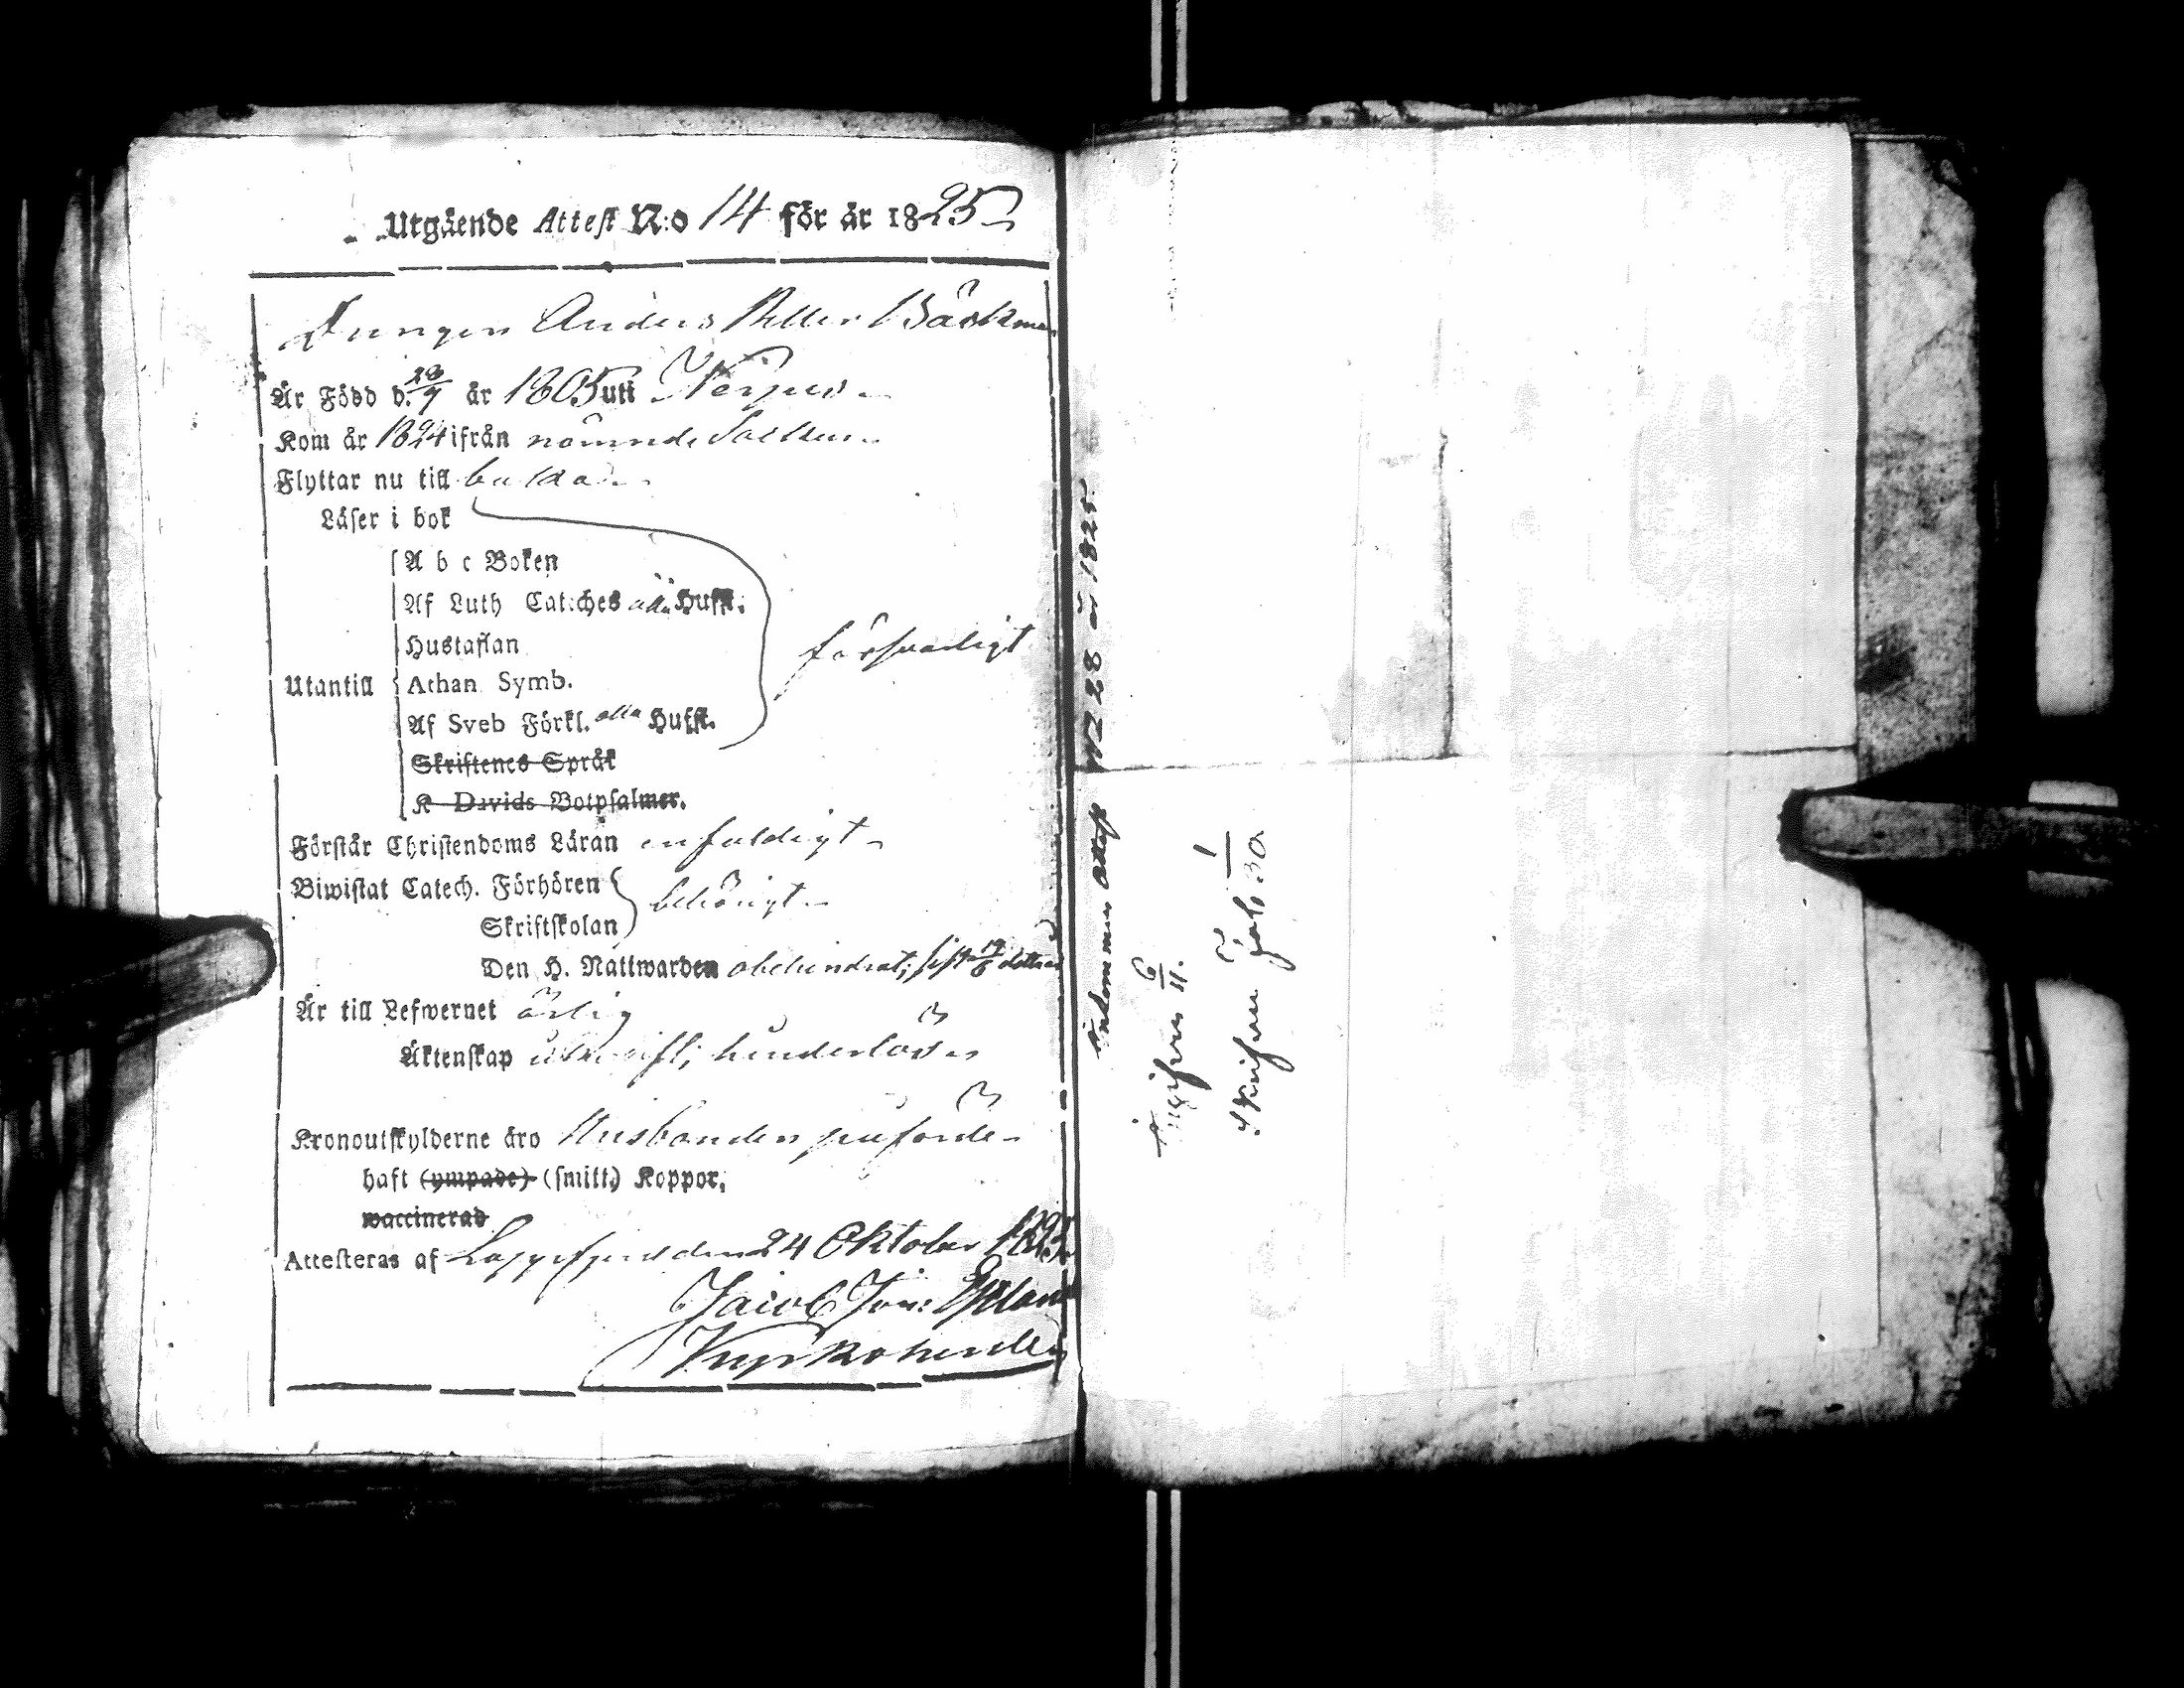 Utgående Attest N:o 14 för år 1825
Drängen Anders Petter Bäckman
Är Född d. 18/9 år 1805 uti Nerpes
Kom år 1824 ifrån nämnde Socken
Flyttar nu till baka
Läser i bok
A b c Boken
Af Luth Cateches alla Hufst.
Hustaflan
försvarligt
Utantill Athan Symb.
Af Sveb Förkl. alla Hufst.
Skriftenes Språk
K Davids Botpsalmer.
Förstår Christendoms Läran enfaldigt
Biwistat Catech. Förhören
behörigt
Skriftskolan
Den H. Nattwarden obehindrat; sist 19/6 detta år
Är till Lefwernet ärlig
Äktenskap hinderlös
Kronoutskylderne äro Husbonden påförde
haft (ympade) (smitt.) Koppor,
waccinerad
Attesteras af Lappfjerd den 24 Oktober 1825.
Jacob Joh:
Inkommen Attest N 28 år 1825
6/11.
1